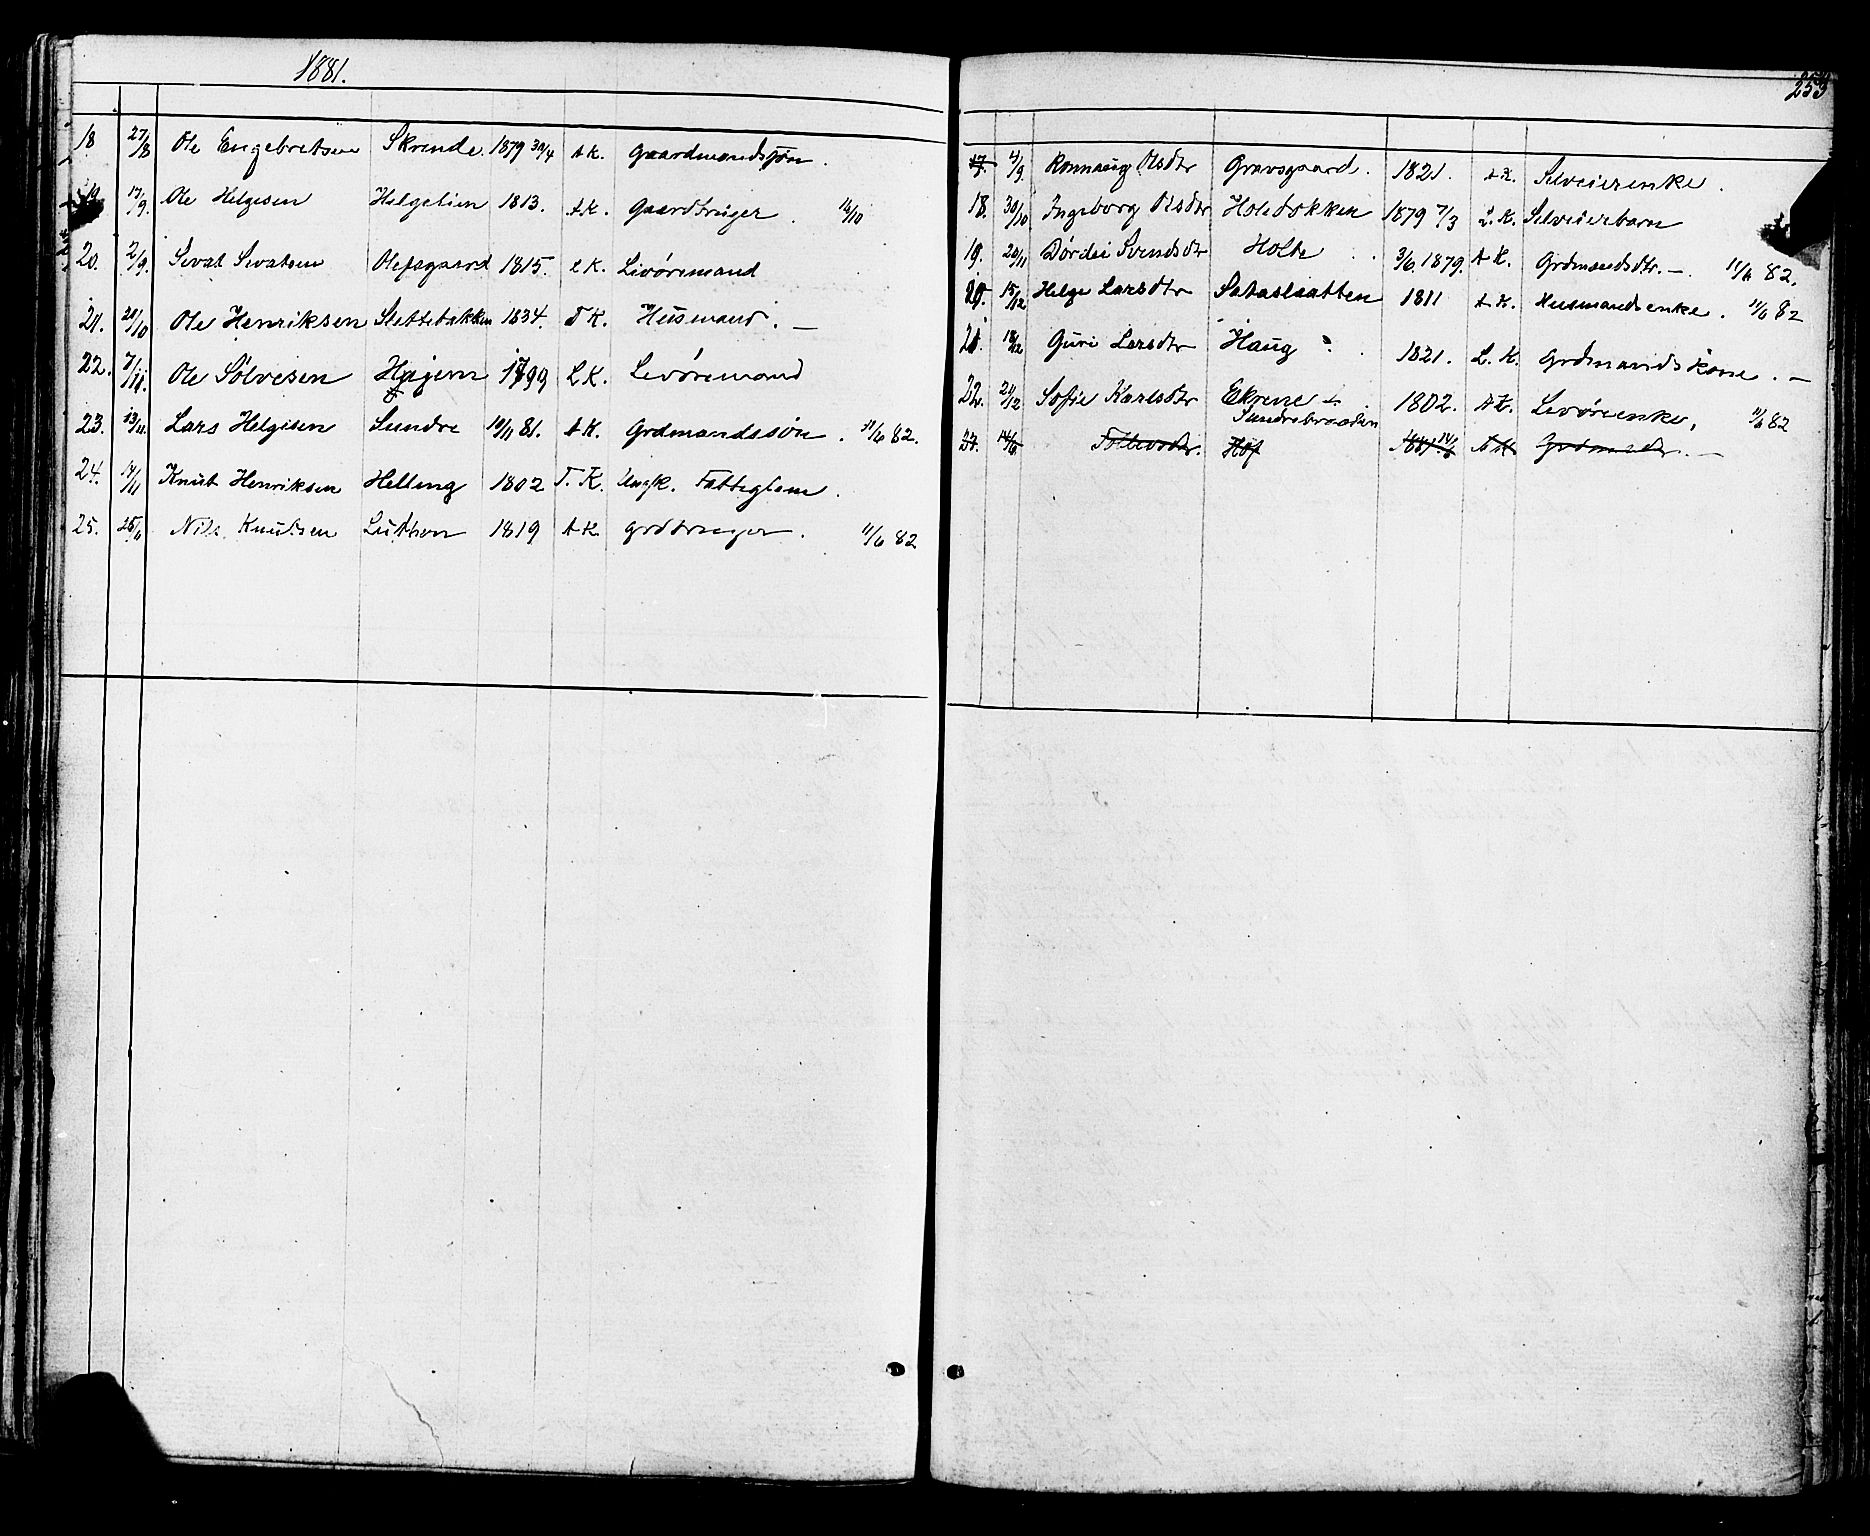 1881.
18 27/8 Ole Engebretsen Skrinde 1879 30/4 A K. Gaardmandssøn.
19 17/9. Ole Helgesen Helgelien 1813. A K. Gaardbruger. 14/10
20. 2/9. Sevat Sevatsen Olefsgaard 1815. L K. Livøremand
21. 20/10 Ole Henriksen Slettebakken 1834. T K. Husmand. —
22. 7/11. Ole Sølvesen Hajem 1799 L K. Livøremand
23. 13/11. Lars Helgesen Sundre 10/11 81. A K. Grdmandssøn. 11/6 82.
24. 14/11 Knut Henriksen Helling 1802 T. K. Ungk. Fattiglem.
25. 25/11 Nils Knudsen 1819 A K. grdbruger. 11/6 82
253
17. 4/9. Rønnaug Olsdtr Gravsgaard. 1821. A K. Selveierenke.
18. 30/10 Ingeborg Olsdtr Holebakken 1879 7/3 L. K. Selveierbarn
19. 20/11 Dørdei Svendsdtr Holte 3/6. 1879. A K. Grdmandsdtr. —. 11/6 82.
20. 15/12 Helge Larsdtr Sataslaatten 1811 A K. Husmandsenke. 11/6 82
21. 18/12 Guri Larsdtr Haug 1821. L. K. Grdmandskone. —
22. 21/12 Sofie Karlsdtr Ekrene 1802. A K. Livøreenke, 11/6 82
Sundrebraaten
14/6 Hof 1881 14/6 A K